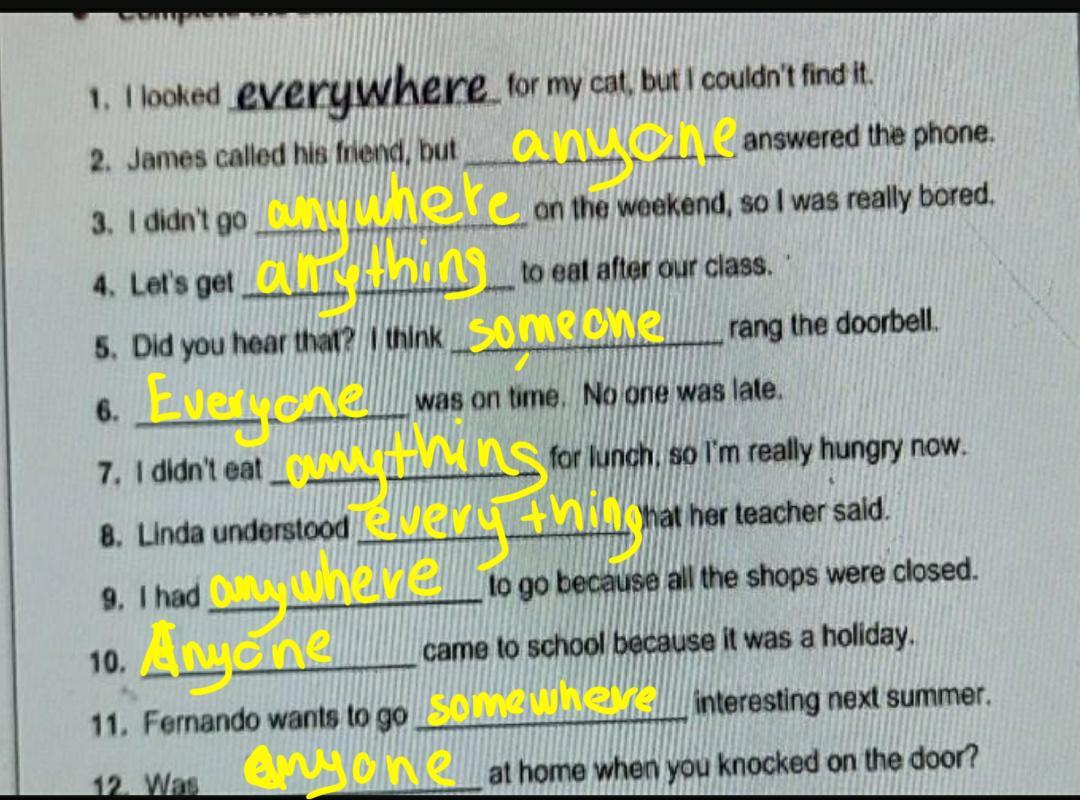 1. I looked everywhere for my cat, but I couldn't find it.
2. James called his friend, but anyone answered the phone.
3. I didn't go anywhere on the weekend, so I was really bored.
4. Let's get anything to eat after our class.
5. Did you hear that? I think someone rang the doorbell.
6. Everyone was on time. No one was late.
7. I didn't eat anything for lunch, so I'm really hungry now.
8. Linda understood everything that her teacher said.
9. I had anywhere to go because all the shops were closed.
10. Anyone came to school because it was a holiday.
11. Fernando wants to go somewhere interesting next summer.
12. Was anyone at home when you knocked on the door?